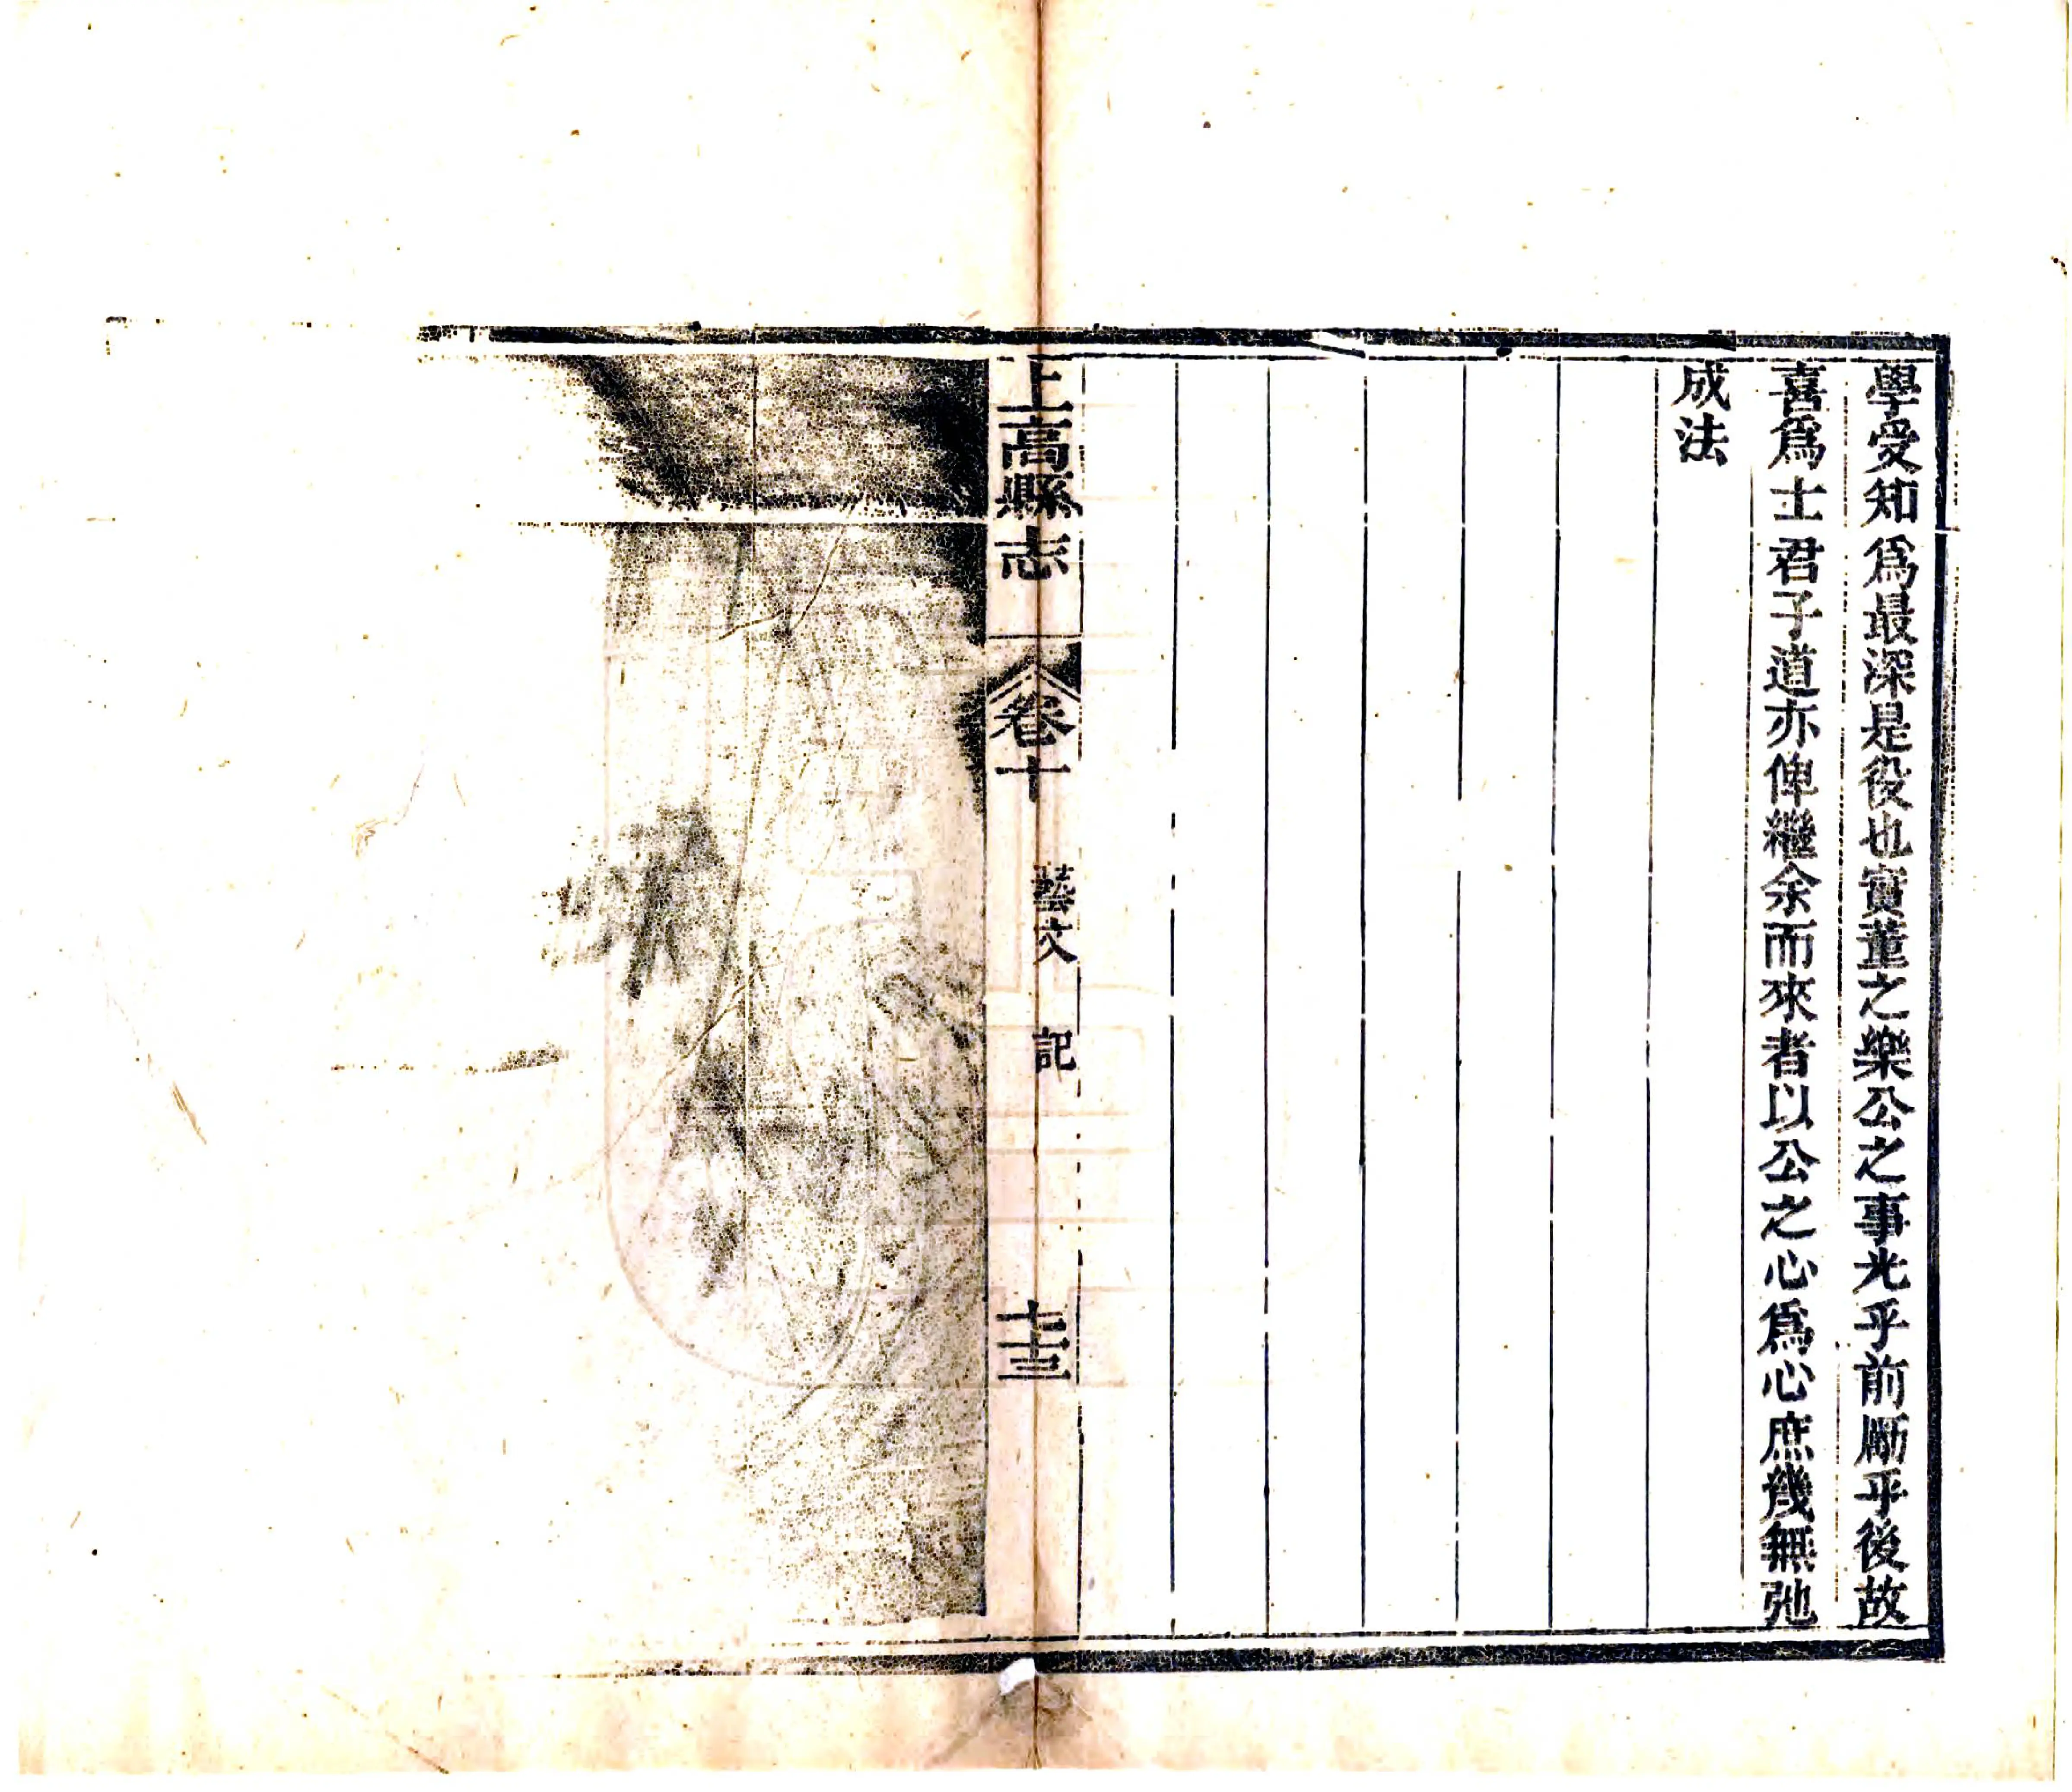 學受知爲最深是役也實董之樂公之事光乎前勵乎後故
喜爲士君子道亦俾繼余而來者以公之心爲心庶幾無弛
成法
上高縣志
卷十
藝文 記
七十三